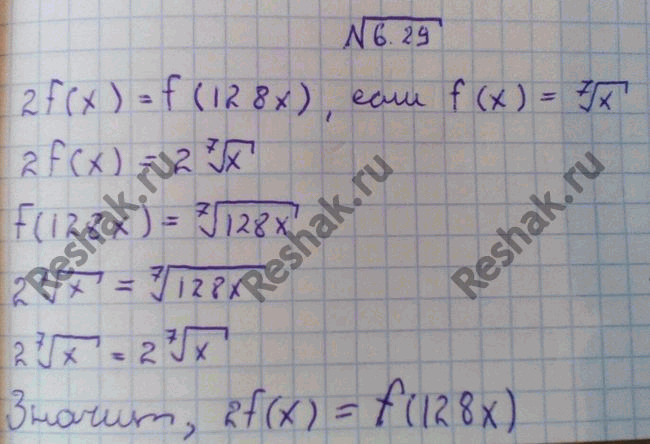 № 6.29
2f(x) = f(128x), если f(x) = ⁷√x
2f(x) = 2 ⁷√x
f(128x) = ⁷√128x
2 ⁷√x = ⁷√128x
2 ⁷√x = 2 ⁷√x
Значит, 2f(x) = f(128x)
Reshak.ru
Reshak.ru
Reshak.ru